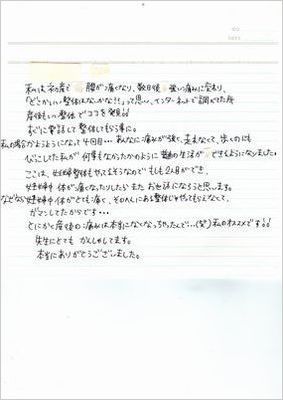 私は ネの産で 腰が痛くなり、数日後 強い痛みに変わり、
「どこかいい整体はないかな!!」って思い、インターネットで調べた所
産後もいい整体 で ココを発見!!
すぐに電話して 整体してもらう事に。
私の場合がようようになって4回目… あんなに痛みが強く、まもなくて、歩くのにも
していた私が 何事もなかったかのように 普通の生活が できるようになりました。
ここは、妊婦整体もやってるそうなので もしも2人目ができ、
妊娠中 体が痛くなったりしたら また お世話になろうと思います。
なぜなら 妊娠中 体がとても痛く、そのへんにある整体じゃやってもらえなくて、
ガマンしてたからです…
とにかく産後の 痛みは本当になくなっちゃったんで…(笑) 私のオススメです!!
先生にとても かんしゃしてます。
本当にありがとうございました。